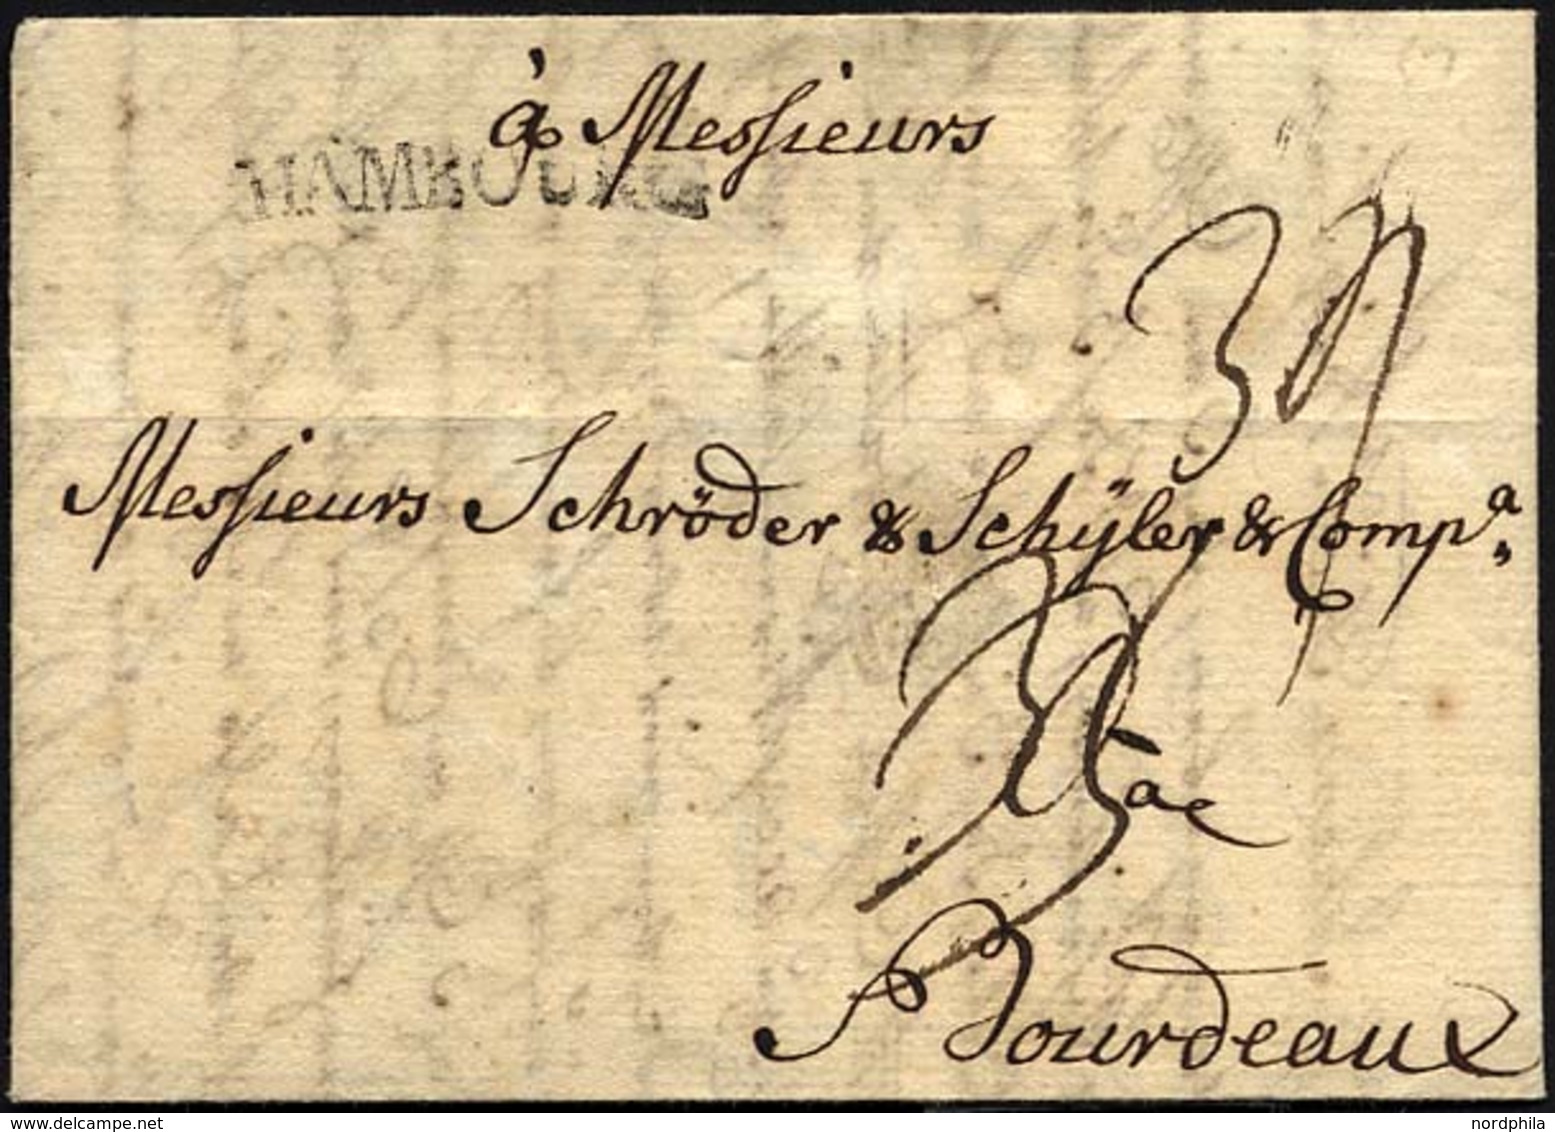 à Messieurs
HAMBOURG
Messieurs Schröder & Schÿler & Comp.ª
a
Bourdeaux
delcampe.net
nordphila